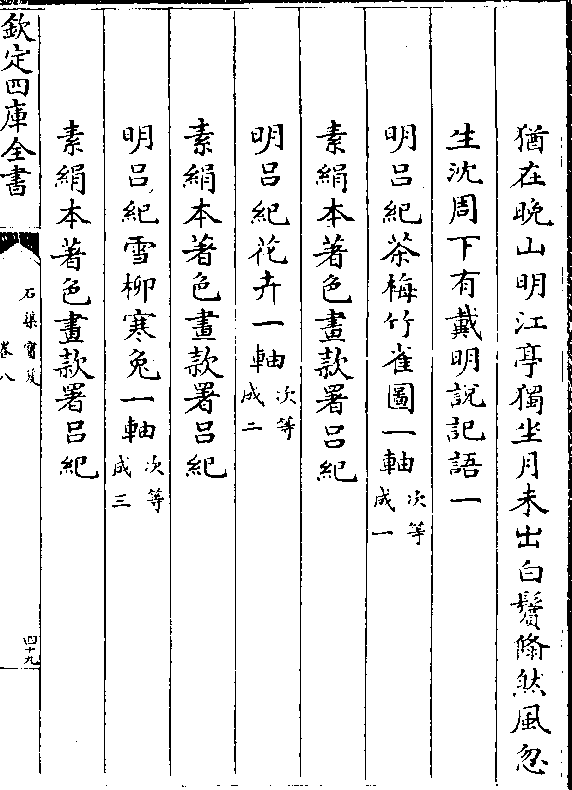 猶在晩山明江亭獨坐月未出白鬢翛然風忽
生沈周下有戴明說記語一
明呂紀茶梅竹雀圖一軸次等成一
素絹本著色畫款署呂紀
明呂紀花卉一軸次等成二
素絹本著色畫款署呂紀
明呂紀雪柳寒兔一軸次等成三
素絹本著色畫款署呂紀
欽定四庫全書
石渠寶笈
卷八
四十九